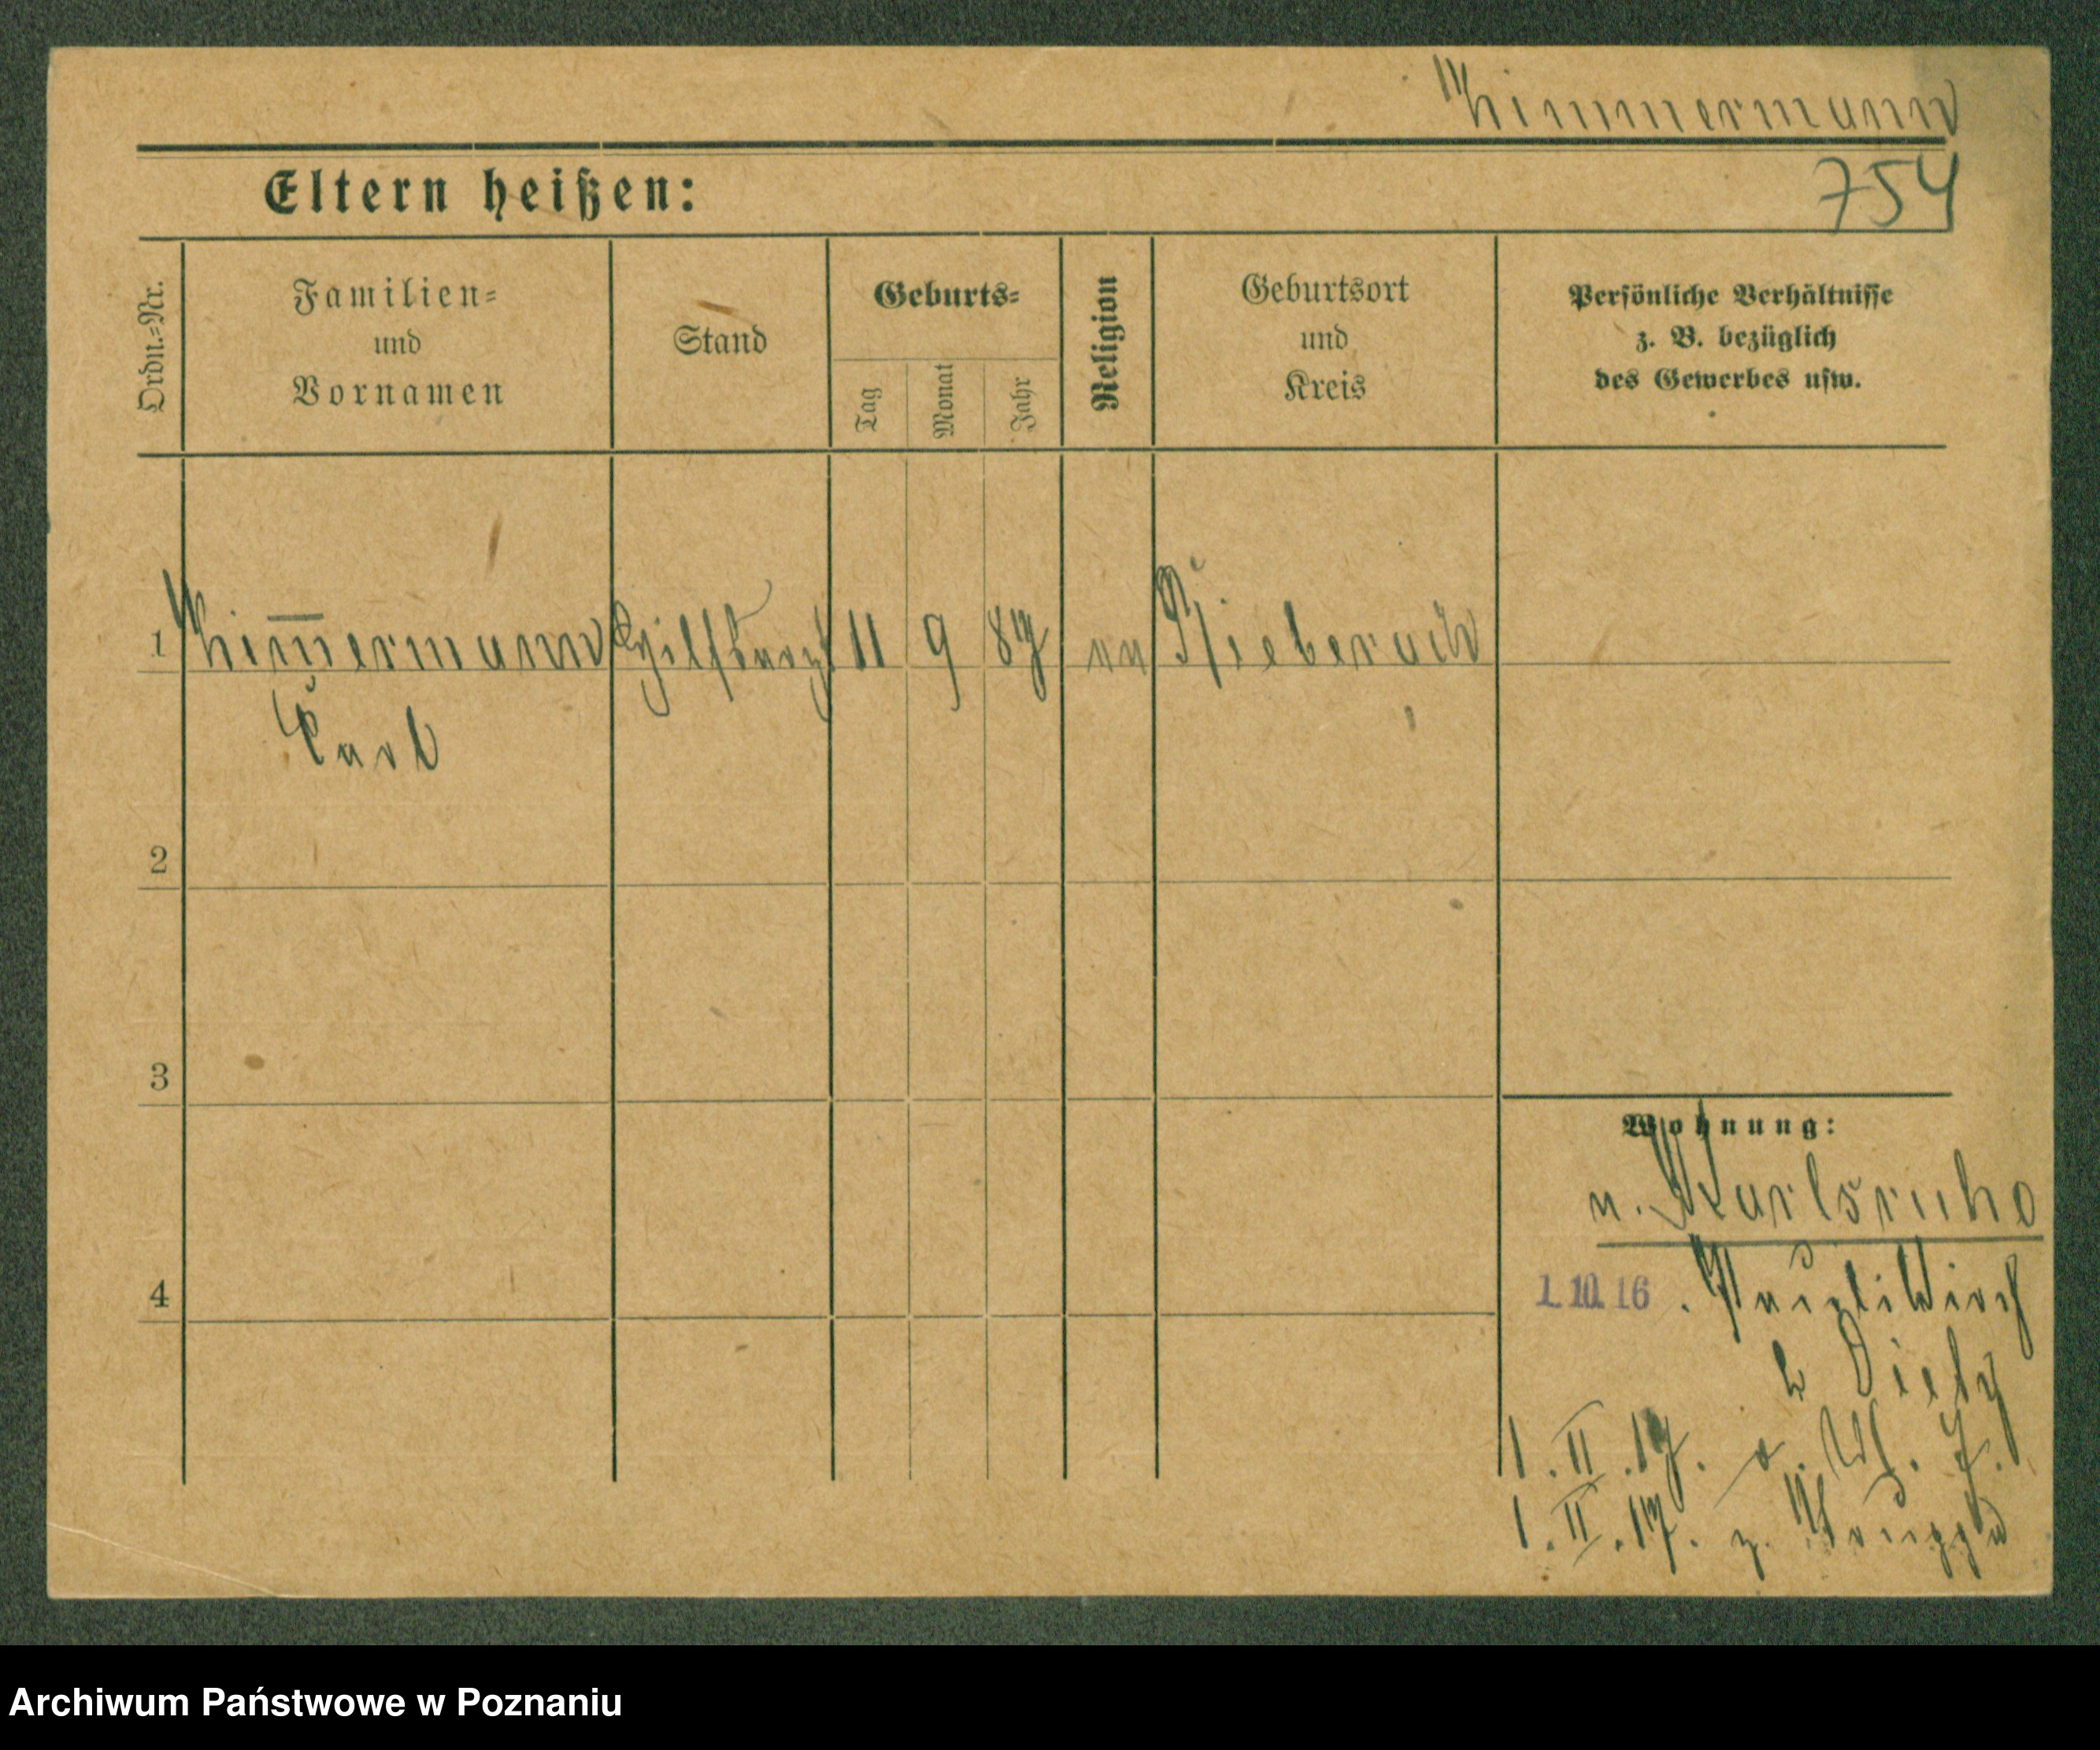 Zimmermann
754
Eltern heißen:
Ordn.=Nr.
Familien=
und
Vornamen
Stand
Geburts=
Tag
Monat
Jahr
Religion
Geburtsort
und
Kreis
Persönliche Verhältnisse
z. B. bezüglich
des Gewerbes usw.
1 Zimmermann 11 9 87 Bieberach
Carl
2
3
4
Wohnung:
n. Karlsruhe
1. 10. 16
b Diely
1. II. 17.
1. II. 17. z. Truppe
Archiwum Państwowe w Poznaniu